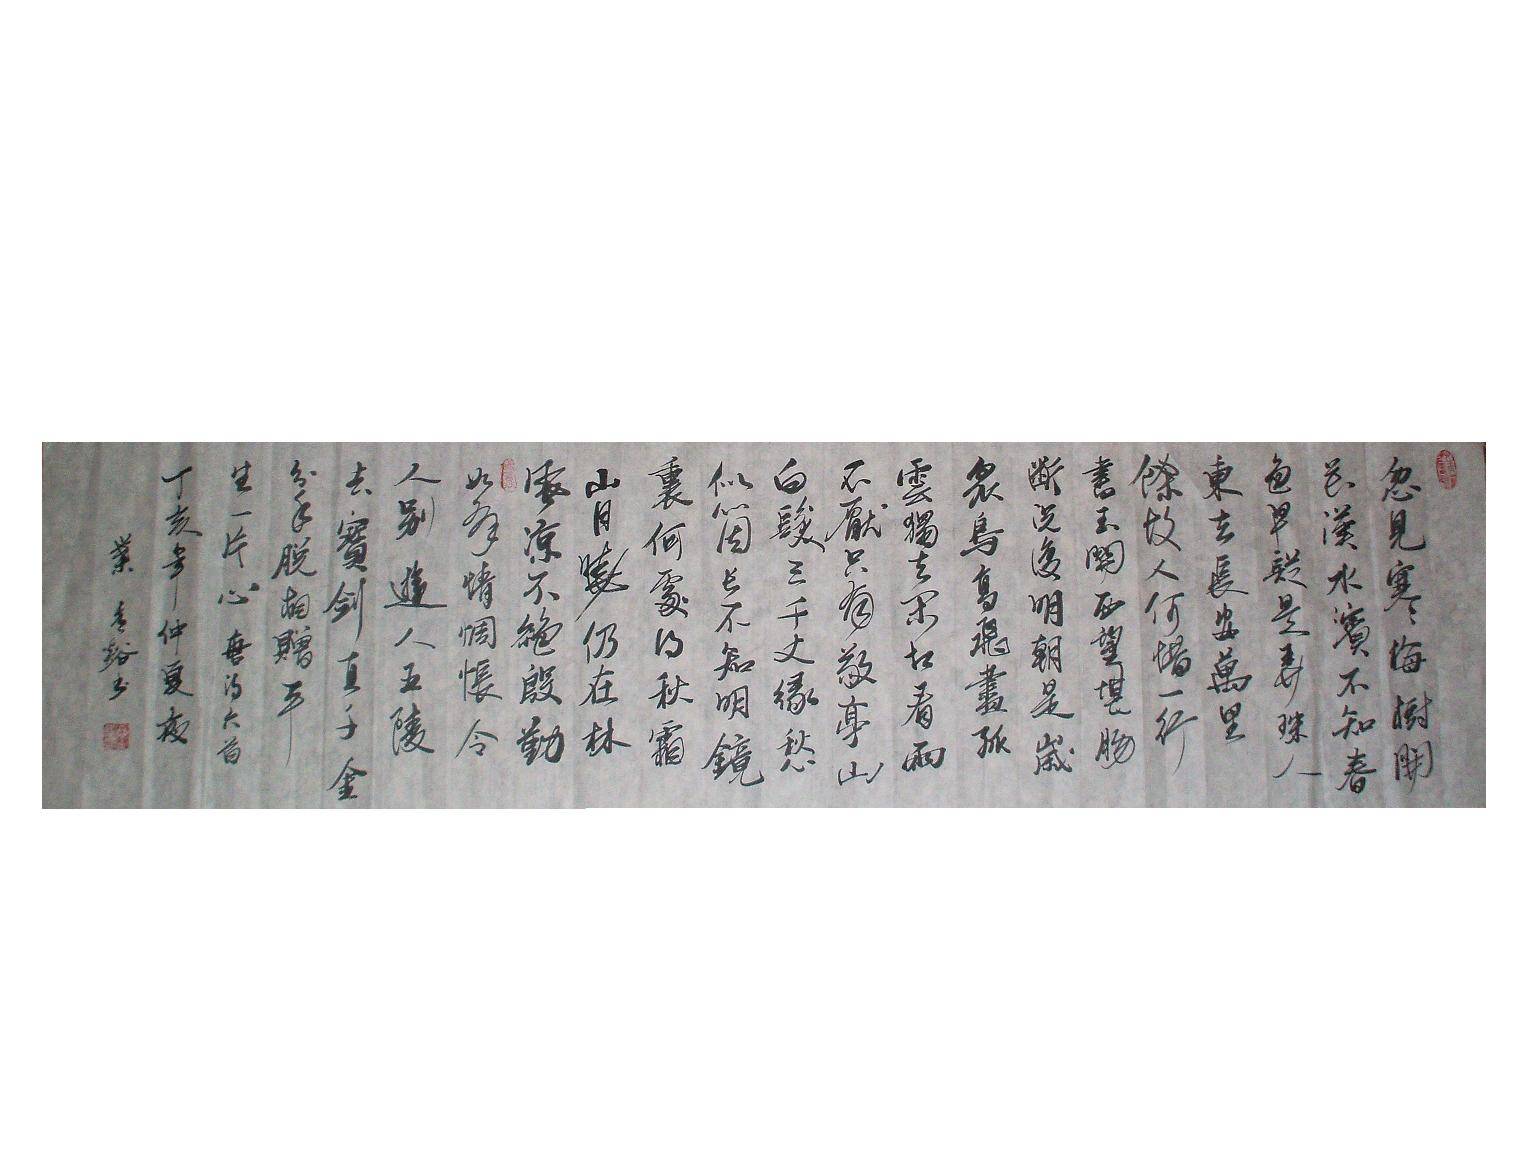 忽見寒梅樹開
花漢水濱不知春
色早疑是弄珠人
東去長安萬里
餘故人何惜一行
書玉關西望堪腸
斷況復明朝是歲
眾鳥高飛盡孤
雲獨去閑相看兩
不厭只有敬亭山
白髮三千丈緣愁
似箇長不知明鏡
裏何處得秋霜
山月曉仍在林
風涼不絕殷勤
如有情惆悵令
人別 遊人五陵
去寶劍直千金
分手脫相贈平
生一片心 唐詩六首
丁亥年仲夏夜
業 香谿書